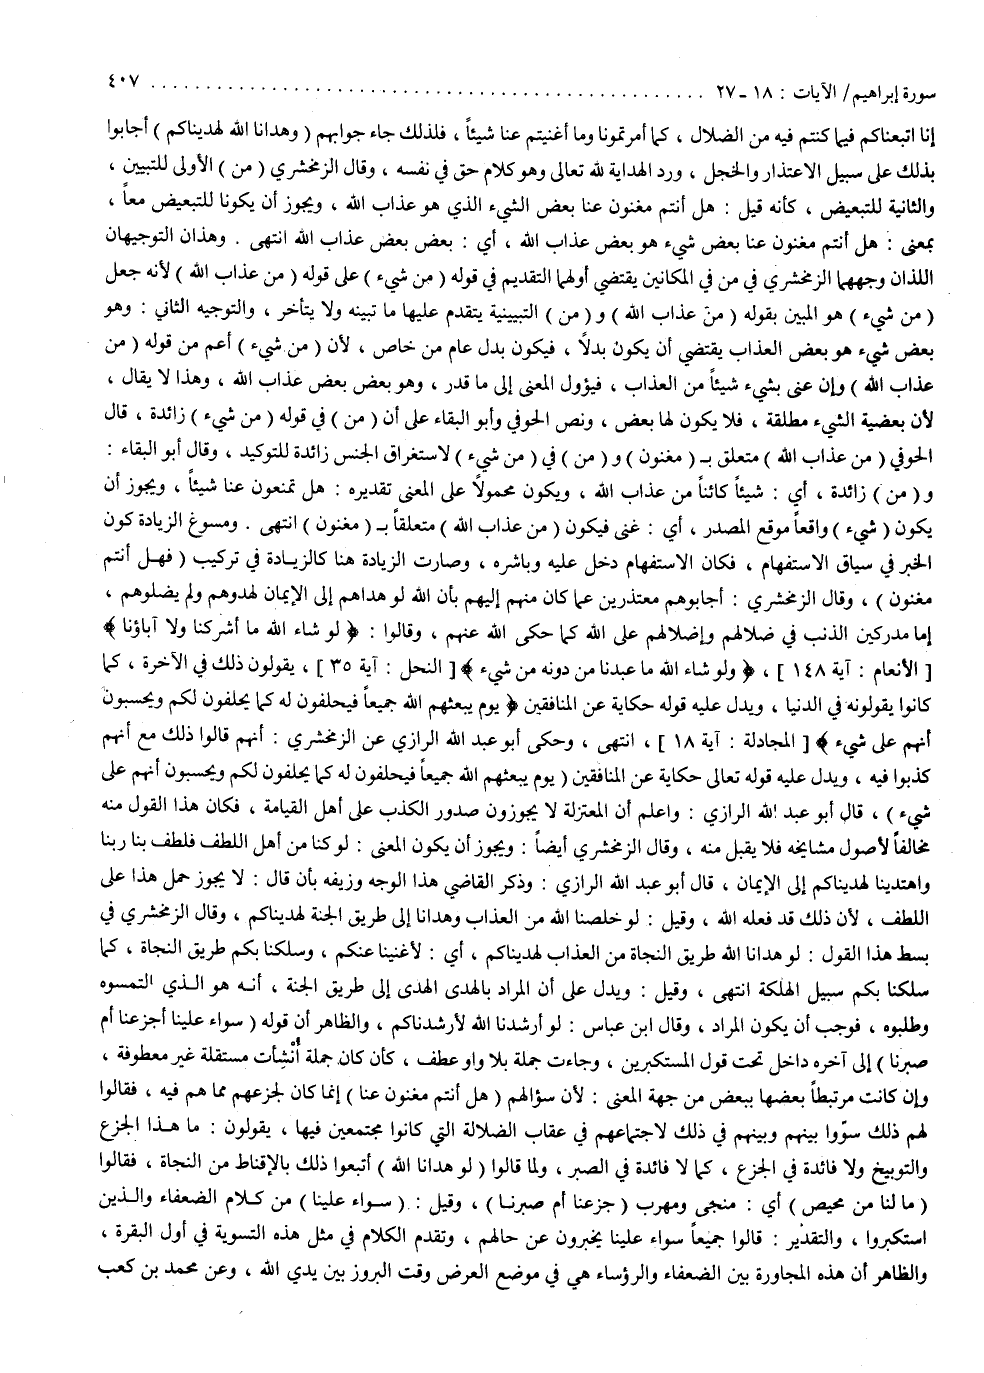 سورة إبراهيم/ الآيات : ١٨ ـ ٢٧ ........................................................ ٤٠٧
إنا اتبعناكم فيما كنتم فيه من الضلال ، كما أمرتمونا وما أغنيتم عنا شيئاً ، فلذلك جاء جوابهم ( وهدانا الله لهديناكم ) أجابوا
بذلك على سبيل الاعتذار والخجل ، ورد الهداية لله تعالى وهو كلام حق في نفسه ، وقال الزمخشري ( من ) الأولى للتبيين ،
والثانية للتبعيض ، كأنه قيل : هل أنتم مغنون عنا بعض الشيء الذي هو عذاب الله ، ويجوز أن يكونا للتبعيض معاً ،
بمعنى : هل أنتم مغنون عنا بعض شيء هو بعض عذاب الله ، أي : بعض بعض عذاب الله انتهى . وهذان التوجيهان
اللذان وجههما الزمخشري في من في المكانين يقتضي أولهما التقديم في قوله ( من شيء ) على قوله ( من عذاب الله ) لأنه جعل
( من شيء ) هو المبين بقوله ( من عذاب الله ) و ( من ) التبيينية يتقدم عليها ما تبينه ولا يتأخر ، والتوجيه الثاني : وهو
بعض شيء هو بعض العذاب يقتضي أن يكون بدلاً ، فيكون بدل عام من خاص ، لأن ( من شيء ) أعم من قوله ( من
عذاب الله ) وإن عنى بشيء شيئاً من العذاب ، فيؤول المعنى إلى ما قدر ، وهو بعض بعض عذاب الله ، وهذا لا يقال ،
لأن بعضية الشيء مطلقة ، فلا يكون لها بعض ، ونص الحوفي وأبو البقاء على أن ( من ) في قوله ( من شيء ) زائدة ، قال
الحوفي ( من عذاب الله ) متعلق بـ ( مغنون ) و ( من ) في ( من شيء ) لاستغراق الجنس زائدة للتوكيد ، وقال أبو البقاء :
و ( من ) زائدة ، أي : شيئاً كائناً من عذاب الله ، ويكون محمولاً على المعنى تقديره : هل تمنعون عنا شيئاً ، ويجوز أن
يكون ( شيء ) واقعاً موقع المصدر ، أي : غنى فيكون ( من عذاب الله ) متعلقاً بـ ( مغنون ) انتهى . ومسوغ الزيادة كون
الخبر في سياق الاستفهام ، فكان الاستفهام دخل عليه وباشره ، وصارت الزيادة هنا كالزيـادة في تركيب ( فهـل أنتم
مغنون ) ، وقال الزمخشري : أجابوهم معتذرين عما كان منهم إليهم بأن الله لو هداهم إلى الإيمان لهدوهم ولم يضلوهم ،
إما مدركين الذنب في ضلالهم وإضلالهم على الله كما حكى الله عنهم ، وقالوا : ﴿ لو شاء الله ما أشركنا ولا آباؤنا ﴾
[ الأنعام : آية ١٤٨ ] ، ﴿ ولو شاء الله ما عبدنا من دونه من شيء ﴾ [ النحل : آية ٣٥ ] ، يقولون ذلك في الآخرة ، كما
كانوا يقولونه في الدنيا ، ويدل عليه قوله حكاية عن المنافقين ﴿ يوم يبعثهم الله جميعاً فيحلفون له كما يحلفون لكم ويحسبون
أنهم على شيء ﴾ [ المجادلة : آية ١٨ ] ، انتهى ، وحكى أبو عبد الله الرازي عن الزمخشري : أنهم قالوا ذلك مع أنهم
كذبوا فيه ، ويدل عليه قوله تعالى حكاية عن المنافقين ( يوم يبعثهم الله جميعاً فيحلفون له كما يحلفون لكم ويحسبون أنهم على
شيء ) ، قال أبو عبد الله الرازي : واعلم أن المعتزلة لا يجوزون صدور الكذب على أهل القيامة ، فكان هذا القول منه
مخالفاً لأصول مشايخه فلا يقبل منه ، وقال الزمخشري أيضاً : ويجوز أن يكون المعنى : لو كنا من أهل اللطف فلطف بنا ربنا
واهتدينا لهديناكم إلى الإيمان ، قال أبو عبد الله الرازي : وذكر القاضي هذا الوجه وزيفه بأن قال : لا يجوز حمل هذا على
اللطف ، لأن ذلك قد فعله الله ، وقيل : لو خلصنا الله من العذاب وهدانا إلى طريق الجنة لهديناكم ، وقال الزمخشري في
بسط هذا القول : لو هدانا الله طريق النجاة من العذاب لهديناكم ، أي : لأغنينا عنكم ، وسلكنا بكم طريق النجاة ، كما
سلكنا بكم سبيل الهلكة انتهى ، وقيل : ويدل على أن المراد بالهدى الهدى إلى طريق الجنة ، أنـه هو الـذي التمسوه
وطلبوه ، فوجب أن يكون المراد ، وقال ابن عباس : لو أرشدنا الله لأرشدناكم ، والظاهر أن قوله ( سواء علينا أجزعنا أم
صبرنا ) إلى آخره داخل تحت قول المستكبرين ، وجاءت جملة بلا واو عطف ، كأن كان جملة أُنْشأت مستقلة غير معطوفة ،
وإن كانت مرتبطاً بعضها ببعض من جهة المعنى : لأن سؤالهم ( هل أنتم مغنون عنا ) إنما كان لجزعهم مما هم فيه ، فقالوا
لهم ذلك سوّوا بينهم وبينهم في ذلك لاجتماعهم في عقاب الضلالة التي كانوا مجتمعين فيها ، يقولون : ما هـذا الجزع
والتوبيخ ولا فائدة في الجزع ، كما لا فائدة في الصبر ، ولما قالوا ( لو هدانا الله ) أتبعوا ذلك بالإقناط من النجاة ، فقالوا
( ما لنا من محيص ) أي : منجى ومهرب ( جزعنا أم صبرنـا ) ، وقيل : ( سواء علينا ) من كـلام الضعفاء والـذين
استكبروا ، والتقدير : قالوا جميعاً سواء علينا يخبرون عن حالهم ، وتقدم الكلام في مثل هذه التسوية في أول البقرة ،
والظاهر أن هذه المجاورة بين الضعفاء والرؤساء هي في موضع العرض وقت البروز بين يدي الله ، وعن محمد بن كعب